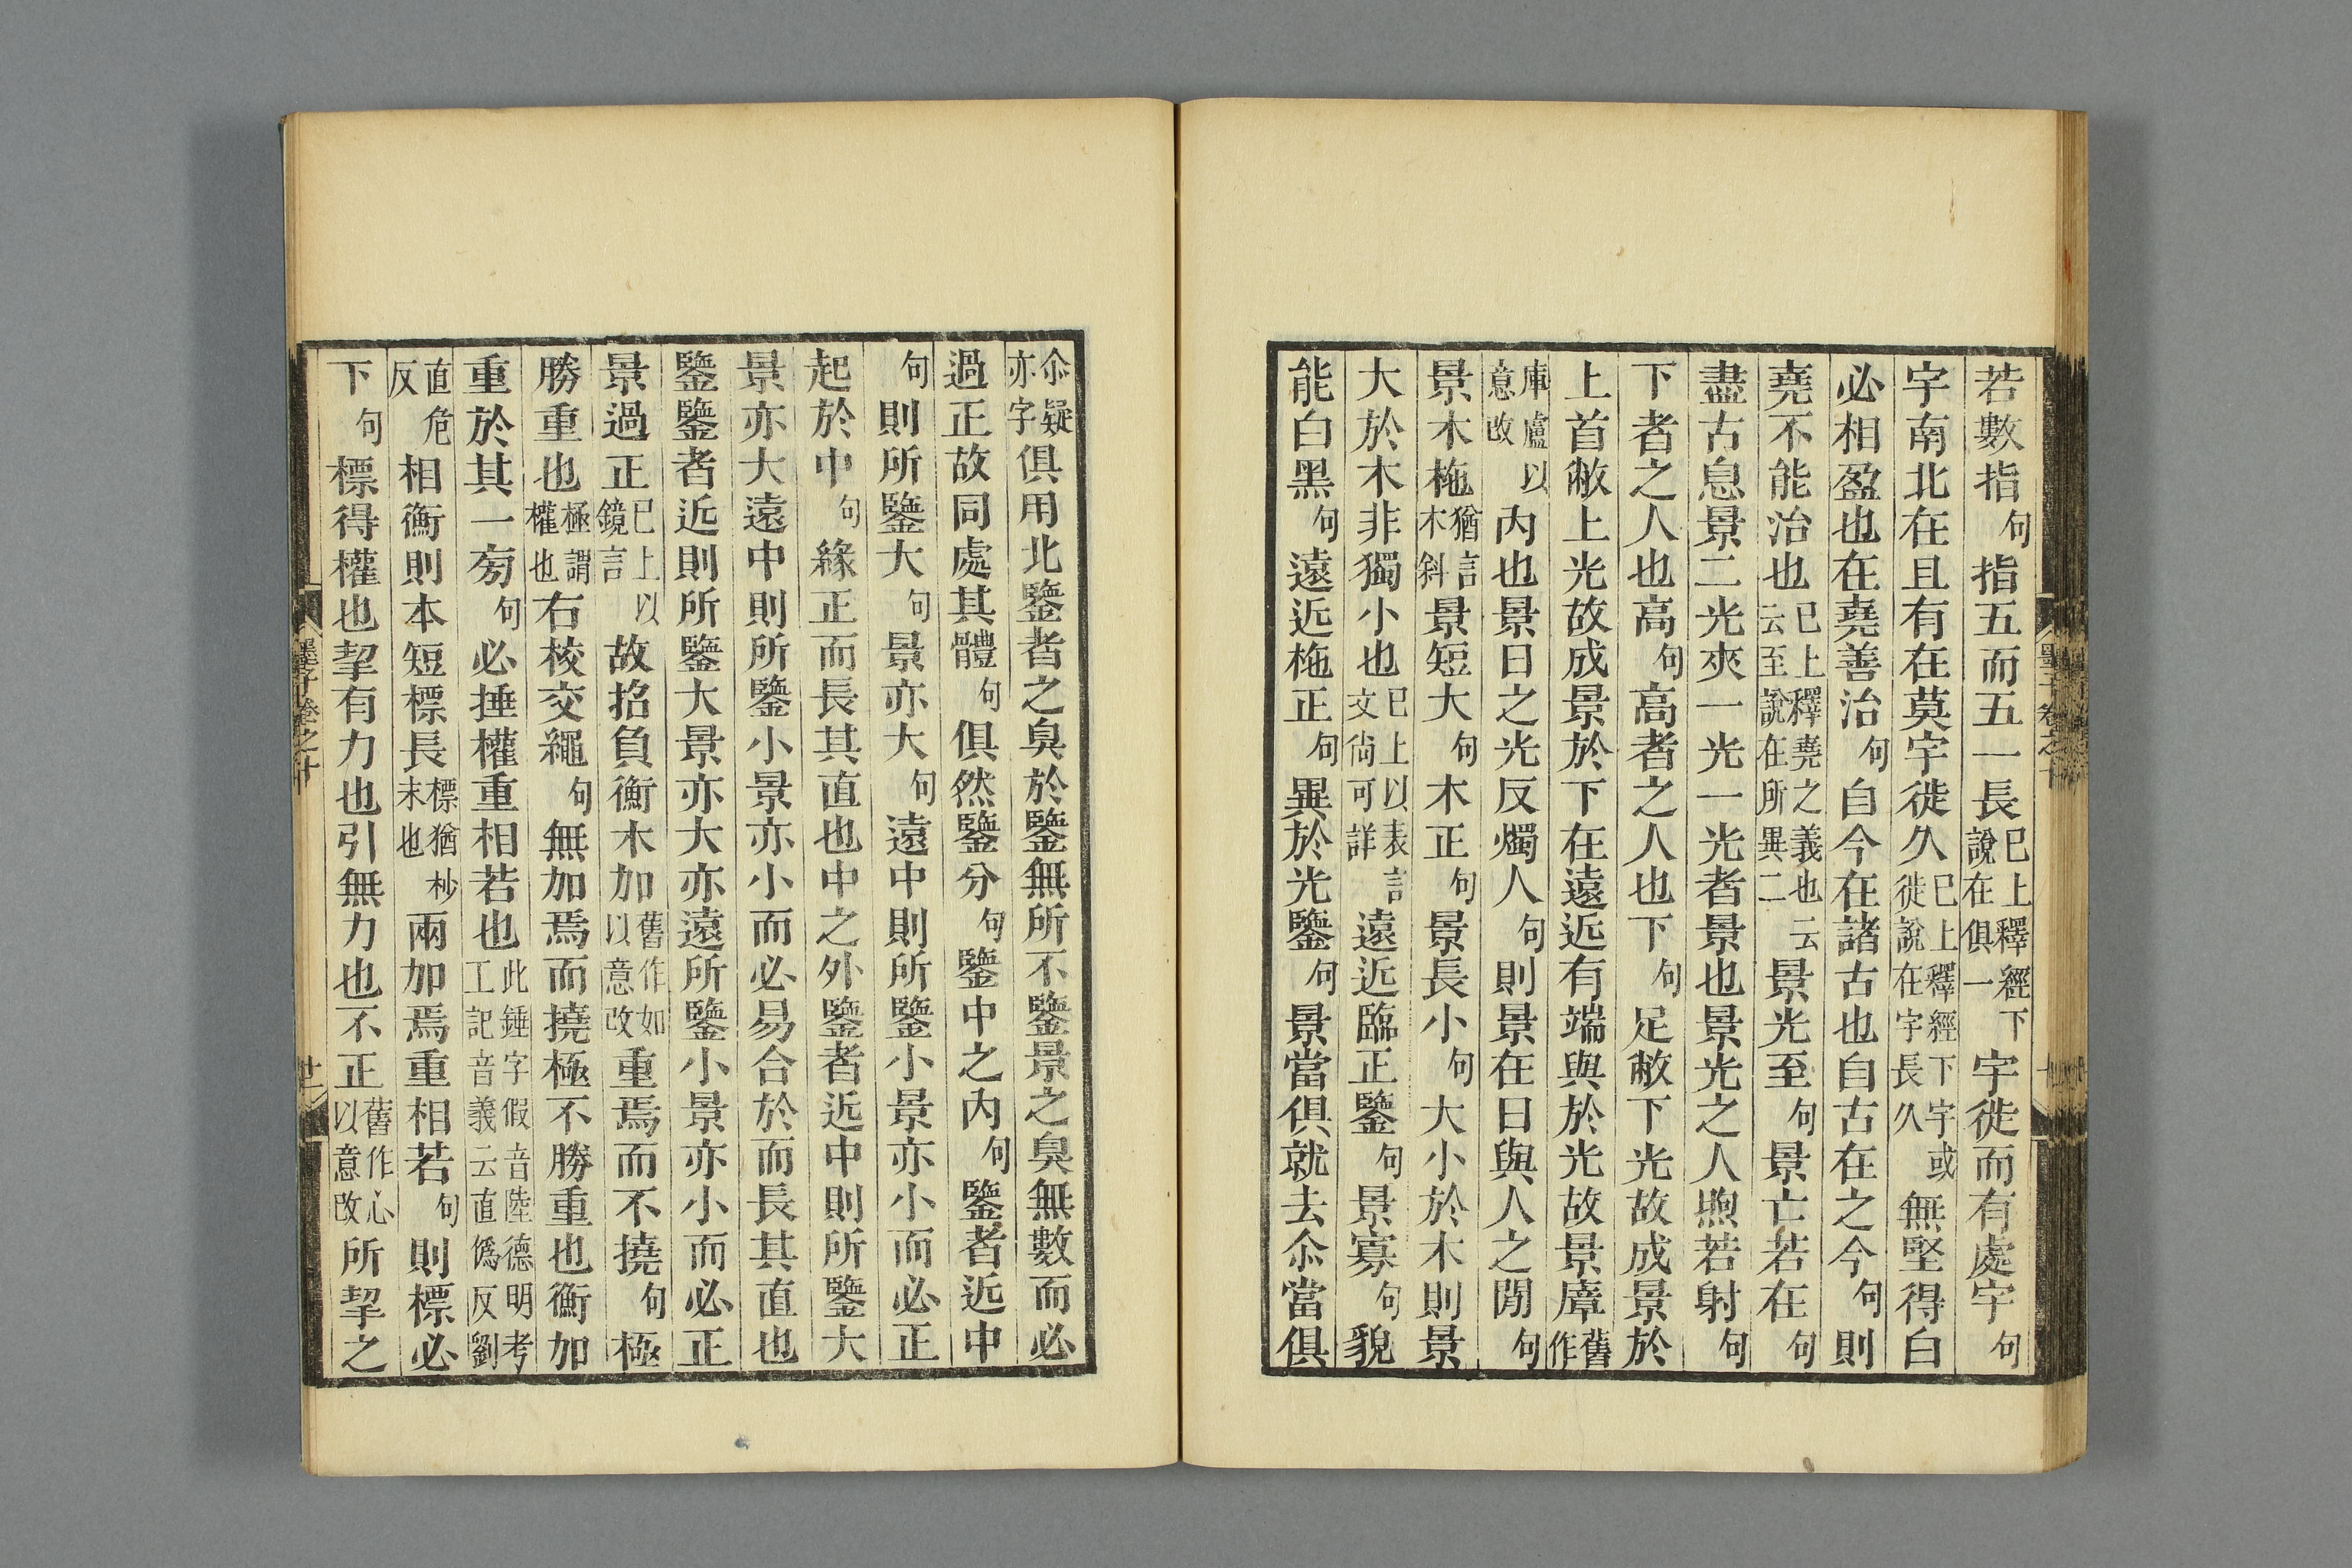 若數指句指五而五一長巳上釋經下說在俱一宇徙而有處宇句
宇南北在且有在莫宇徙久巳上釋經下宇或徙說在宇長久無堅得白
必相盈也在堯善治句自今在諸古也自古在之今句則
堯不能治也巳上釋堯之義也云云至說在所異二景光至句景亡若在句
盡古息景二光夾一光一光者景也景光之人煦若射句
下者之人也高句高者之人也下句足敝下光故成景於
上首敝上光故成景於下在遠近有端與於光故景㢓舊作
庫盧以意改內也景日之光反燭人句則景在日與人之閒句
景木柂猶言木斜景短大句木正句景長小句大小於木則景
大於木非獨小也巳上以表言文尙可詳遠近臨正鑒句景寡句貌
能白黑句遠近柂正句異於光鑒句景當俱就去尒當俱
尒疑亦字俱用北鑒者之臭於鑒無所不鑒景之臭無數而必
過正故同處其體句俱然鑒分句鑒中之內句鑒者近中
句則所鑒大句景亦大句遠中則所鑒小景亦小而必正
起於中句緣正而長其直也中之外鑒者近中則所鑒大
景亦大遠中則所鑒小景亦小而必易合於而長其直也
鑒鑒者近則所鑒大景亦大亦遠所鑒小景亦小而必正
景過正巳上以鏡言故招負衡木加舊作如以意改重焉而不撓句極
勝重也極謂權也右校交繩句無加焉而撓極不勝重也衡加
重於其一旁句必捶權重相若也此錘字假音陸德明考工記音義云直僞反劉
直危反相衡則本短標長標猶杪末也兩加焉重相若句則標必
下句標得權也挈有力也引無力也不正舊作心以意改所挈之
墨子卷之十
廿一